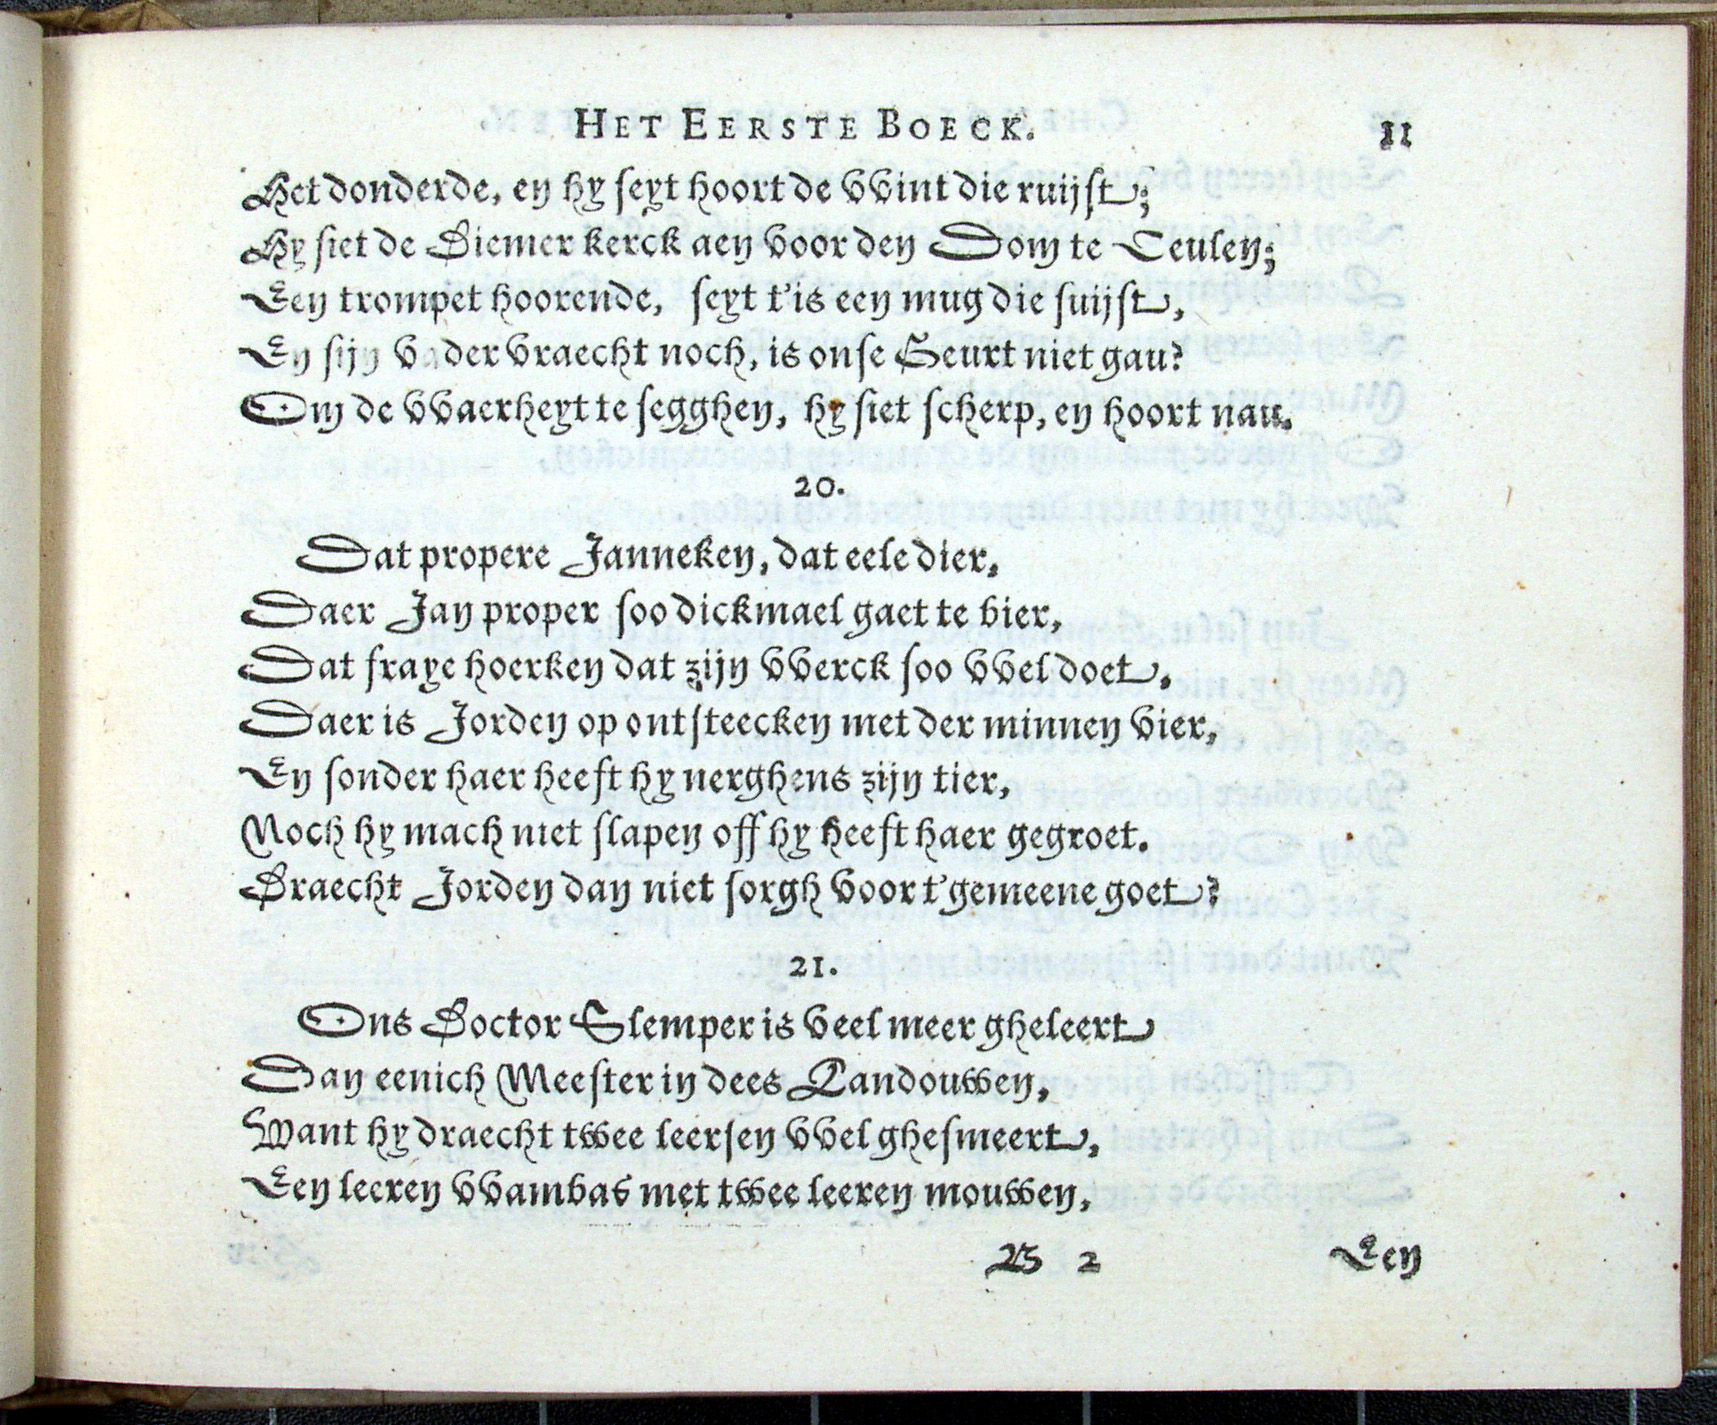 HET EERSTE BOECK. 11
Het donderde, en hy seyt hoort de vvint die ruijst;
Hy siet de Diemer kerck aen voor den Dom te Ceulen;
Een trompet hoorende, seyt t'is een mug die suijst,
En sijn vader vraecht noch, is onse Geurt niet gau?
Om de vvaerheyt te segghen, hy siet scherp, en hoort nau.
20.
Dat propere Janneken, dat eele dier,
Daer Jan proper soo dickmael gaet te bier,
Dat fraye hoerken dat zijn vverck soo vvel doet,
Daer is Jorden op ontsteecken met der minnen vier,
En sonder haer heeft hy nerghens zijn tier,
Noch hy mach niet slapen off hy heeft haer gegroet.
Draecht Jorden dan niet sorgh voor t'gemeene goet?
21.
Ons Doctor Slemper is veel meer gheleert
Dan eenich Meester in dees Landouwen,
Want hy draecht twee leersen vvel ghesmeert,
Een leeren vvambas met twee leeren mouwen,
B 2 Een